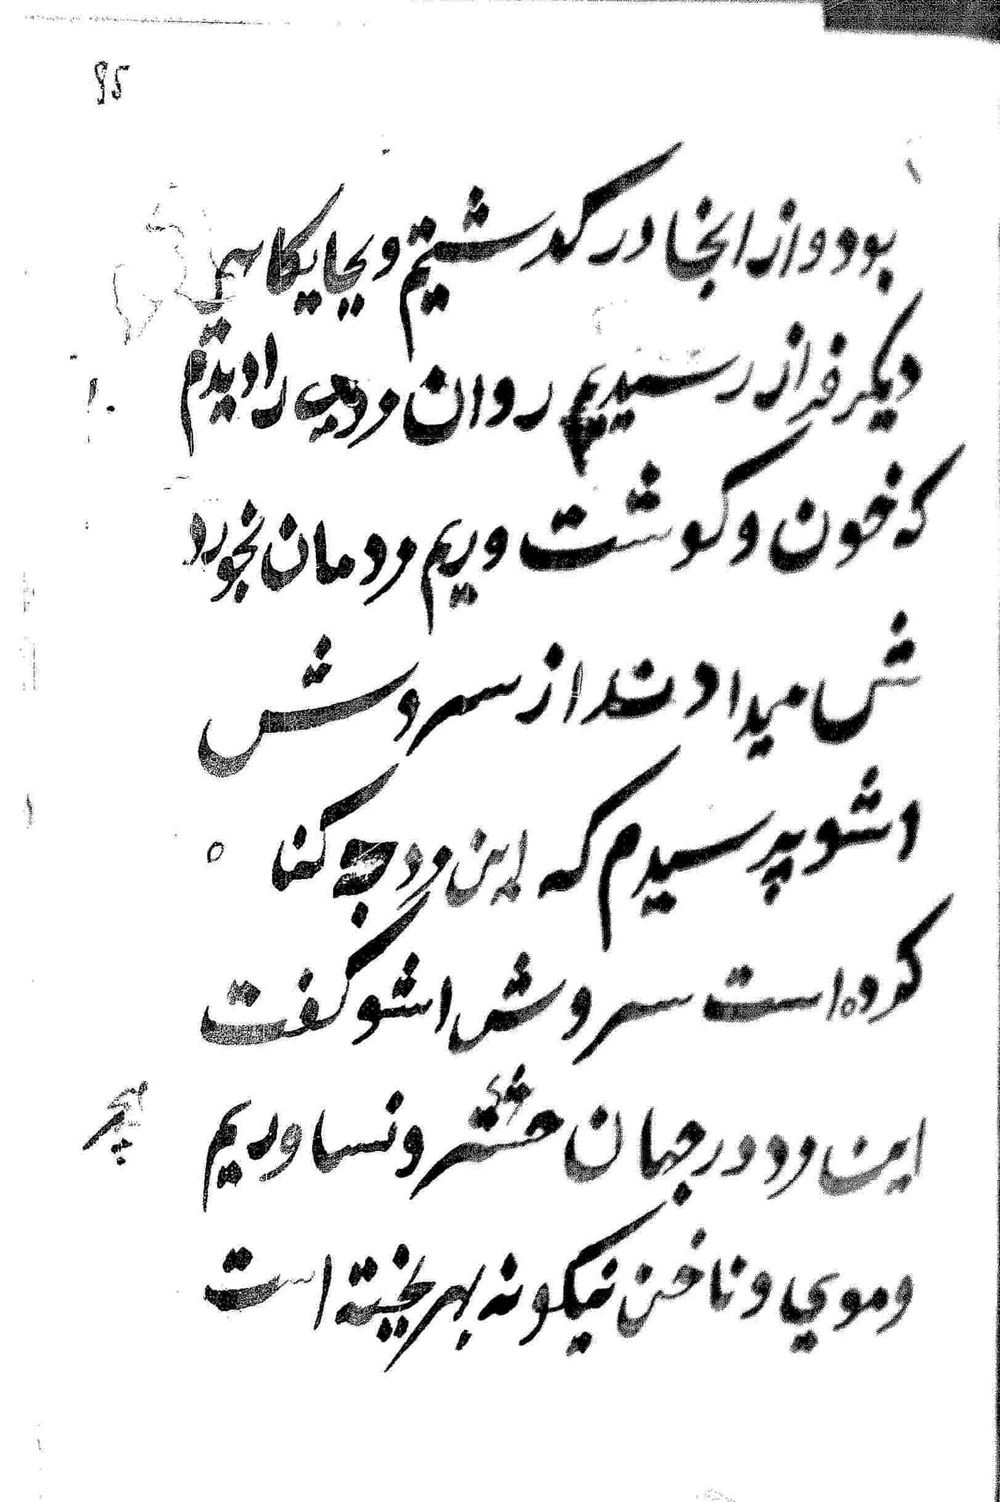 95
بود و از انجا در کدشتیم و بجایکاهی
دیکر فراز رسیدیم روان مردی را دیدم
که خون و کوشت و ریم مردمان بخورد
ش میدادند از سروش
اشو پرسیدم که این مرد چه کنا
کرده است سروش اشو کفت
این مرد در جهان حشتر و نسا و ریم
و موی و ناخن نیکونه بهریخته است